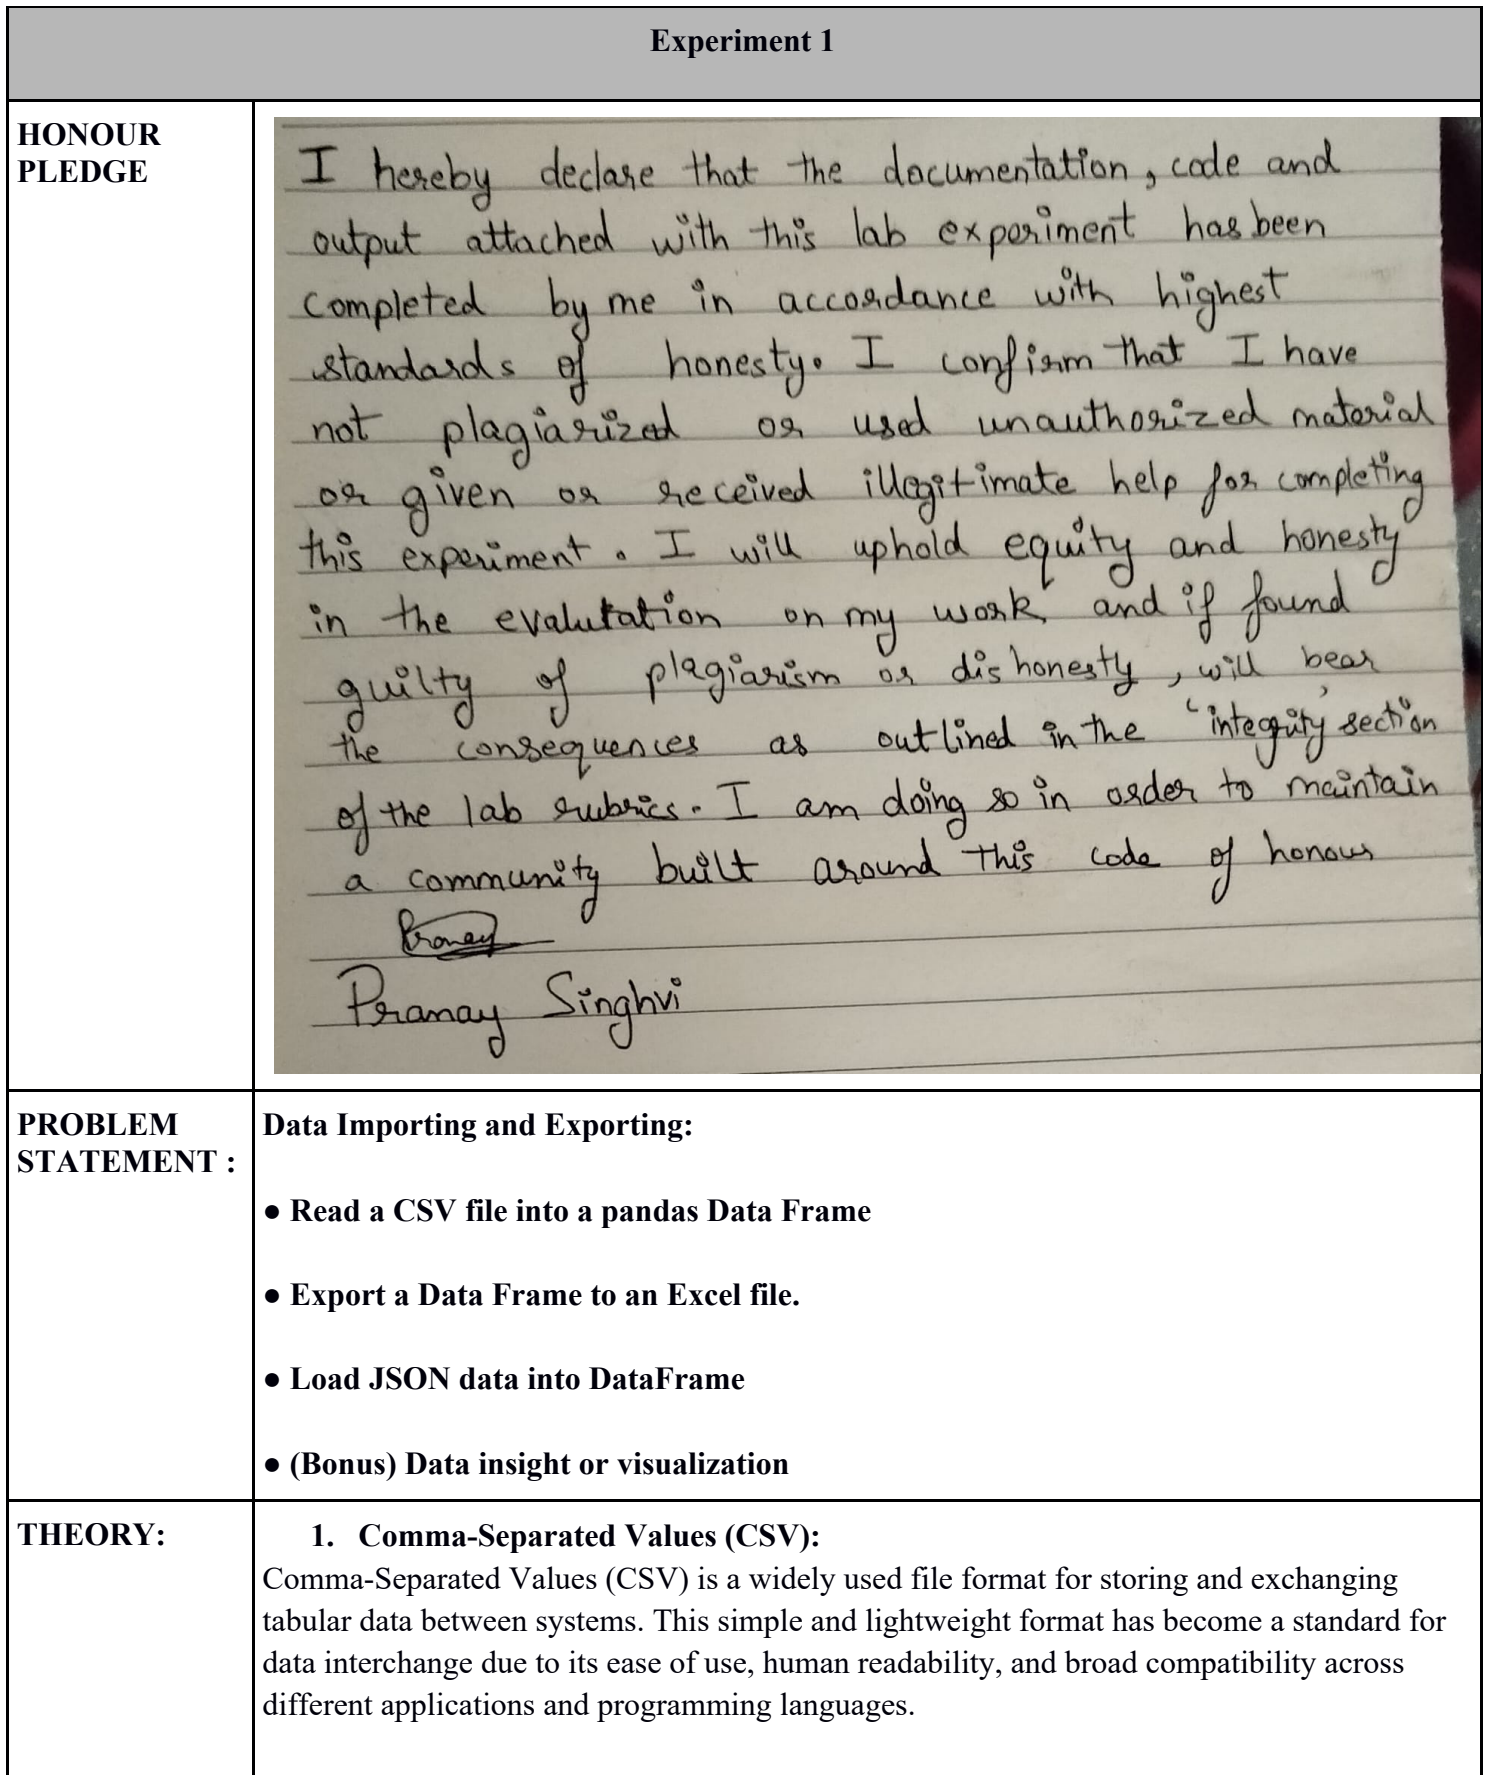 Experiment 1
HONOUR
PLEDGE
I hereby declare that the documentation, code and
output attached with this lab experiment has been
completed by me in accordance with highest
standards of honesty. I confirm that I have
not plagiarized or used unauthorized material
or given or received illegitimate help for completing
this experiment. I will uphold equity and honesty
in the evalutation on my work and if found
guilty of plagiarism or dishonesty, will bear
the consequences as outlined in the 'integrity' section
of the lab rubrics. I am doing so in order to maintain
a community built around this code of honour
Pranay
Pranay Singhvi
PROBLEM
STATEMENT :
Data Importing and Exporting:
● Read a CSV file into a pandas Data Frame
● Export a Data Frame to an Excel file.
● Load JSON data into DataFrame
● (Bonus) Data insight or visualization
THEORY:
1. Comma-Separated Values (CSV):
Comma-Separated Values (CSV) is a widely used file format for storing and exchanging
tabular data between systems. This simple and lightweight format has become a standard for
data interchange due to its ease of use, human readability, and broad compatibility across
different applications and programming languages.